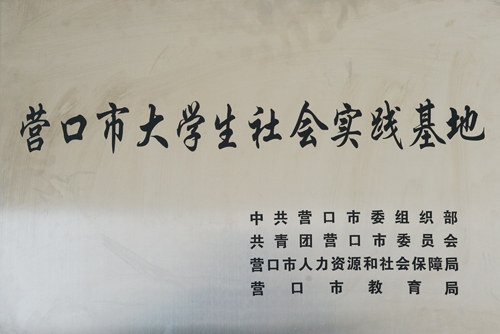 营口市大学生社会实践基地
中共营口市委组织部
共青团营口市委员会
营口市人力资源和社会保障局
营口市教育局